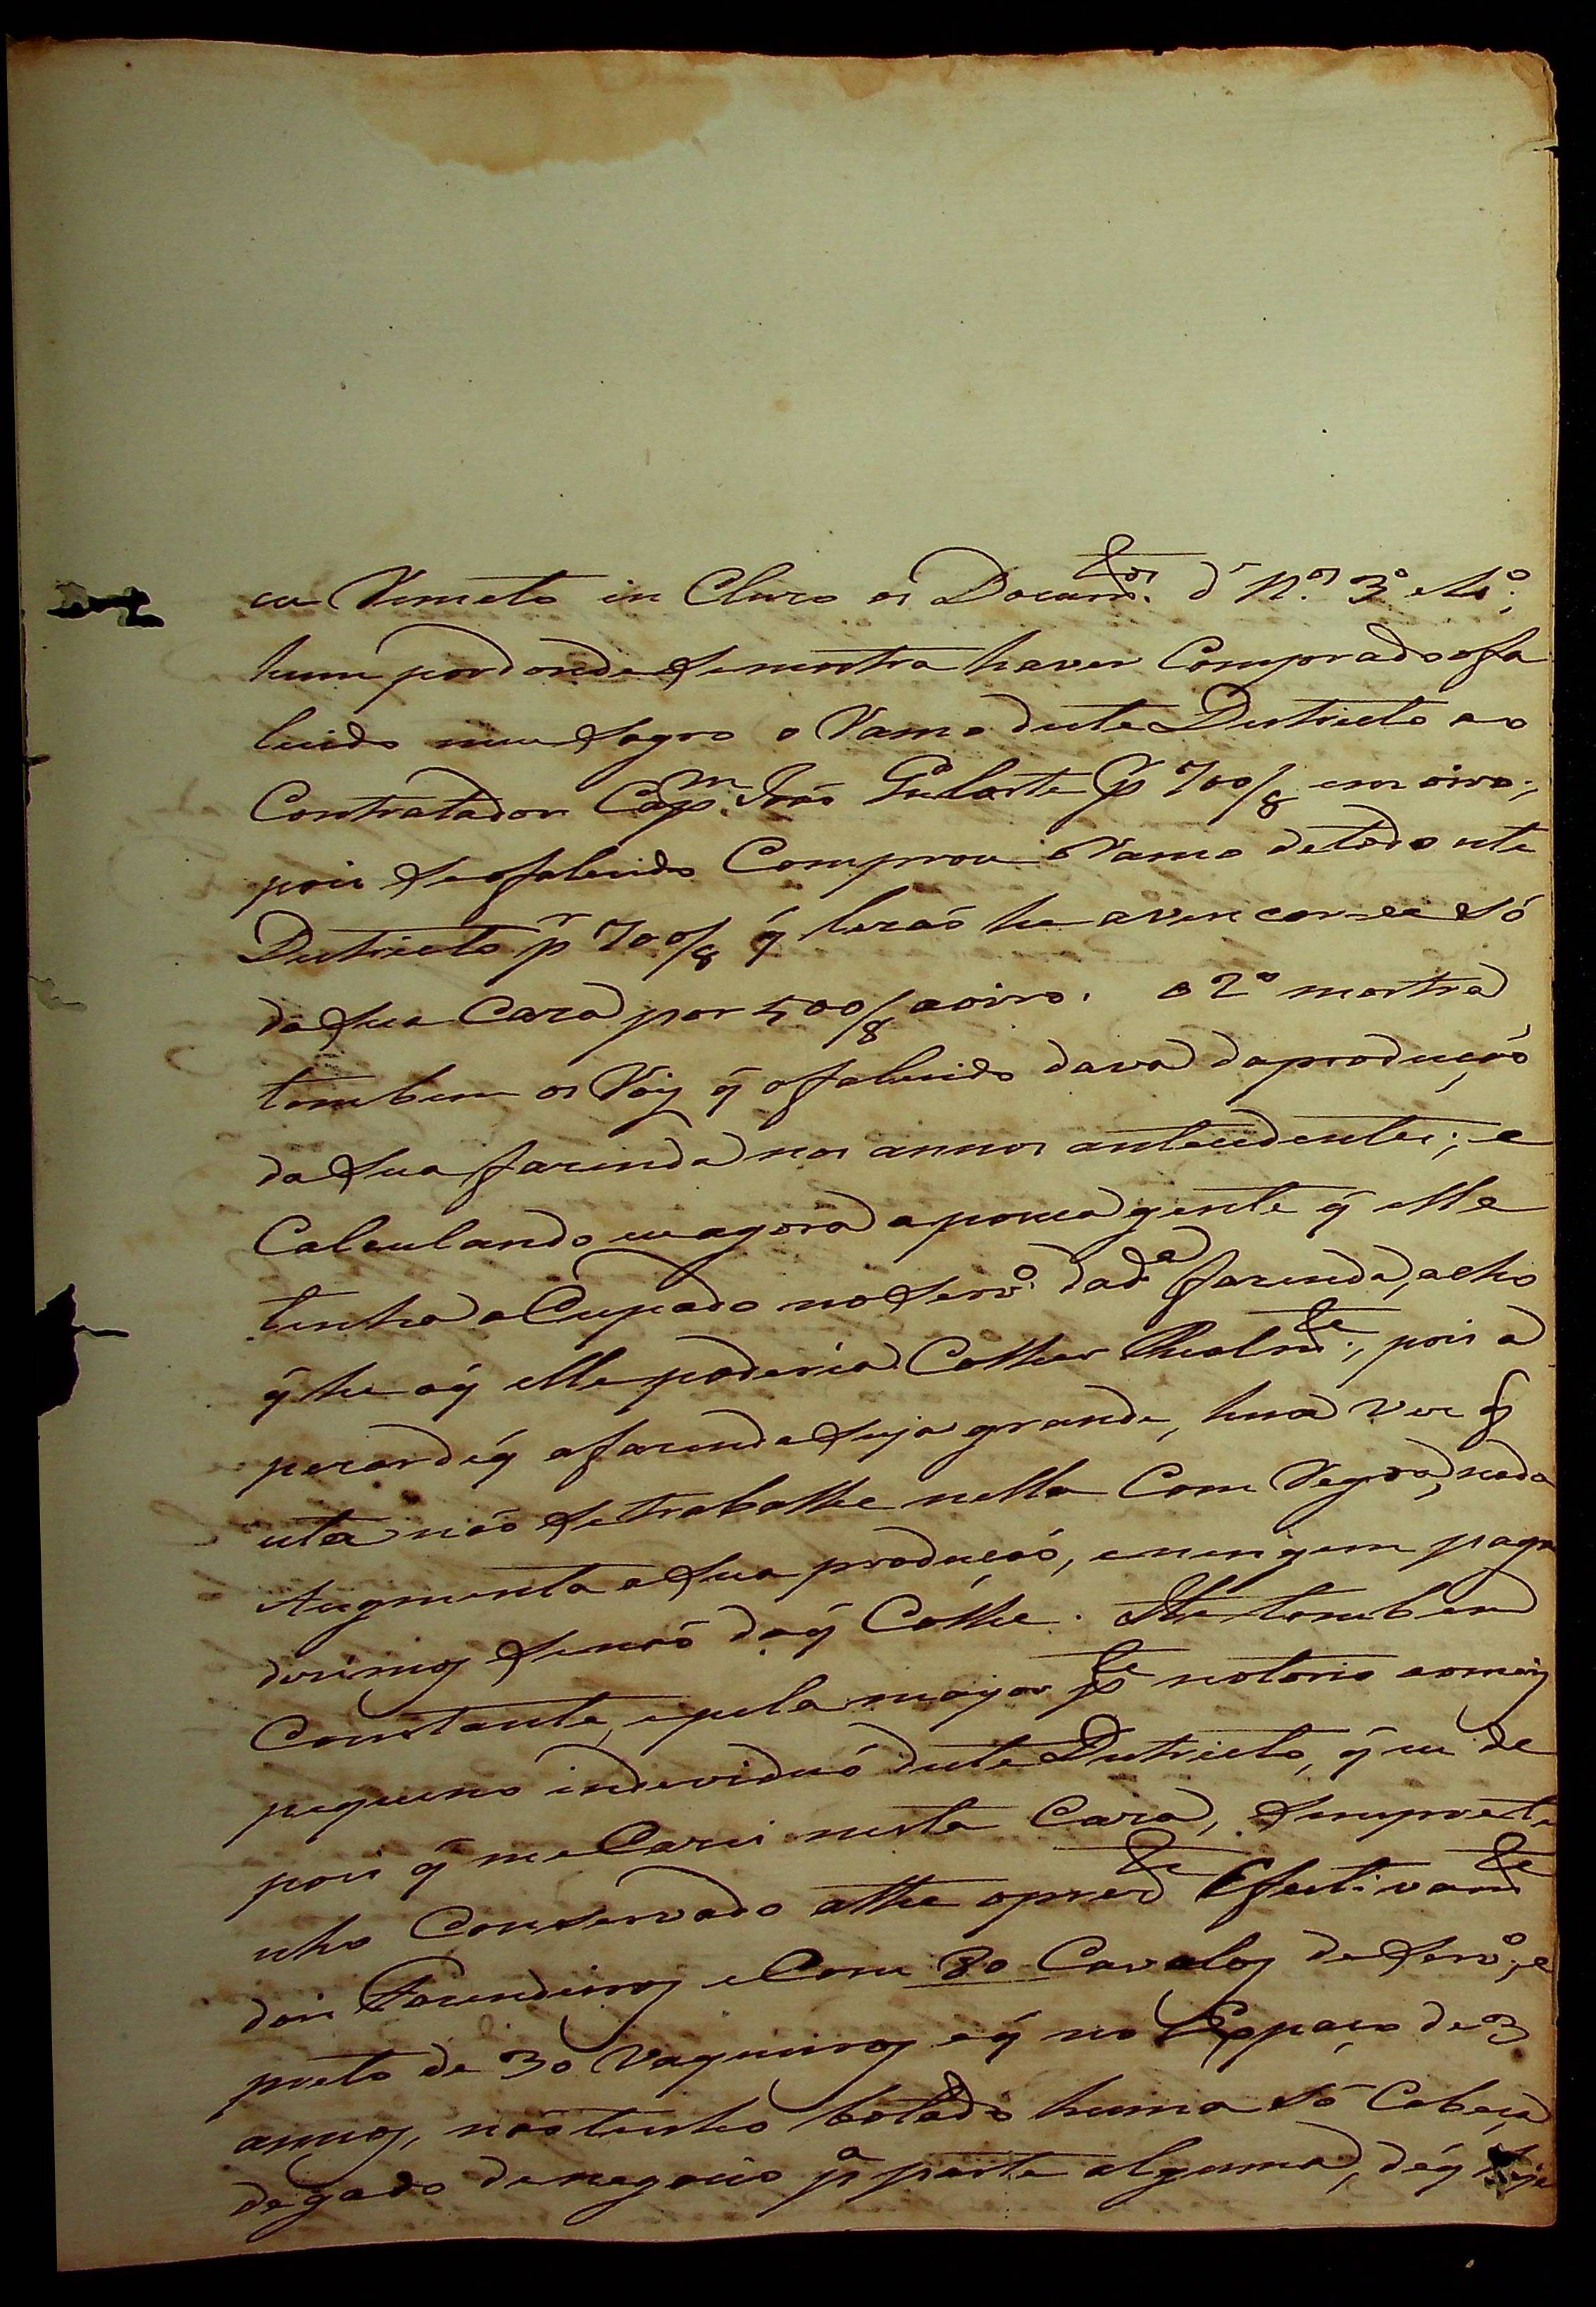 eu Remeto in Cluzo os Docum.tos d' N.os 3º e 4º;
hum por donde se mostra haver Comprado o fa
lecido meu sogro o Ramo deste Destricto ao
Contratador Cap.m João Gularte p 700/8 em oiro;
pois se o falecido Comprou o Ramo de todo este
Destricto p.r 700/8 q̃ lezaó he avencarse só
da sua Caza por 500/8 a oiro. o 2º mostra
tambem os Róis q̃ o falecido dava da produçaõ
da sua fazenda nos annos antecedentes; e
Calculando eu agora a pouca gente q̃ elle
tinha a Cupado no serv.º da d.a fazenda, acho
q̃ he o q̃ elle poderia Colher Realm.te; pois a
pezar d' q̃ a fazenda seja grande, huã vez q̃
esta naõ se trabalhe nella Com Regra, nada
Augmenta a sua produçaõ, e ningem paga
dizimos senaõ do q̃ Colhe. He tambem
Constante, e pela mayor p.te notorio ao mais
pequeno individuó deste Destricto, q̃ eu de
pois q̃ me Cazei nesta Caza, sempre te
nho Conservado athe o prez.te Efectivam.te
dois Fazendeiros e Com 80 Cavalos de serv.º, e
preto de 30 Vaqueiros e q̃ no Espaço de 3
annos, naõ tenho botado huma só Cabeça
de gado de negocio p.a parte alguma, d' q̃ seja